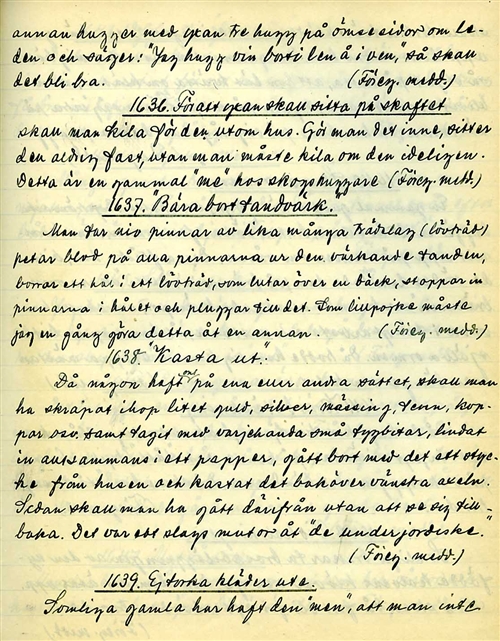 annan hugger med yxan tre hugg på ömse sidor om le-
den och säger: "Jag hugg vin borti len å i ven," så skall
det bli bra. (Föreg. medd.)
1636. För att yxan skall sitta på skaftet
skall man kila för den utom hus. Gör man det inne, sitter
den aldrig fast, utan man måste kila om den ideligen.
Detta är en gammal "me" hos skogshuggare (Föreg. medd.)
1637. "Bära bort tandvärk."
Man tar nio pinnar av lika många trädslag (lövträd)
petar blod på alla pinnarna ur den värkande tanden,
borrar ett hål i ett lövträd, som lutar över en bäck, stoppar in
pinnarna i hålet och pluggar till det. Som liten pojke måste
jag en gång göra detta åt en annan. (Föreg. medd.)
1638. "Kasta ut."
Då någon haft ont på ena eller andra sättet, skall man
ha skrapat ihop litet guld, silver, mässing, tenn, kop-
par osv. samt tagit med varjehanda små tygbitar, lindat
in alltsammans i ett papper, gått bort med det ett styc-
ke från husen och kastat det baköver vänstra axeln.
Sedan skall man ha gått därifrån utan att se sig till-
baka. Det var ett slags mutor åt "de underjordiske."
(Föreg. medd.)
1639. Ej torka kläder ute.
Somliga gamla har haft den "men", att man inte